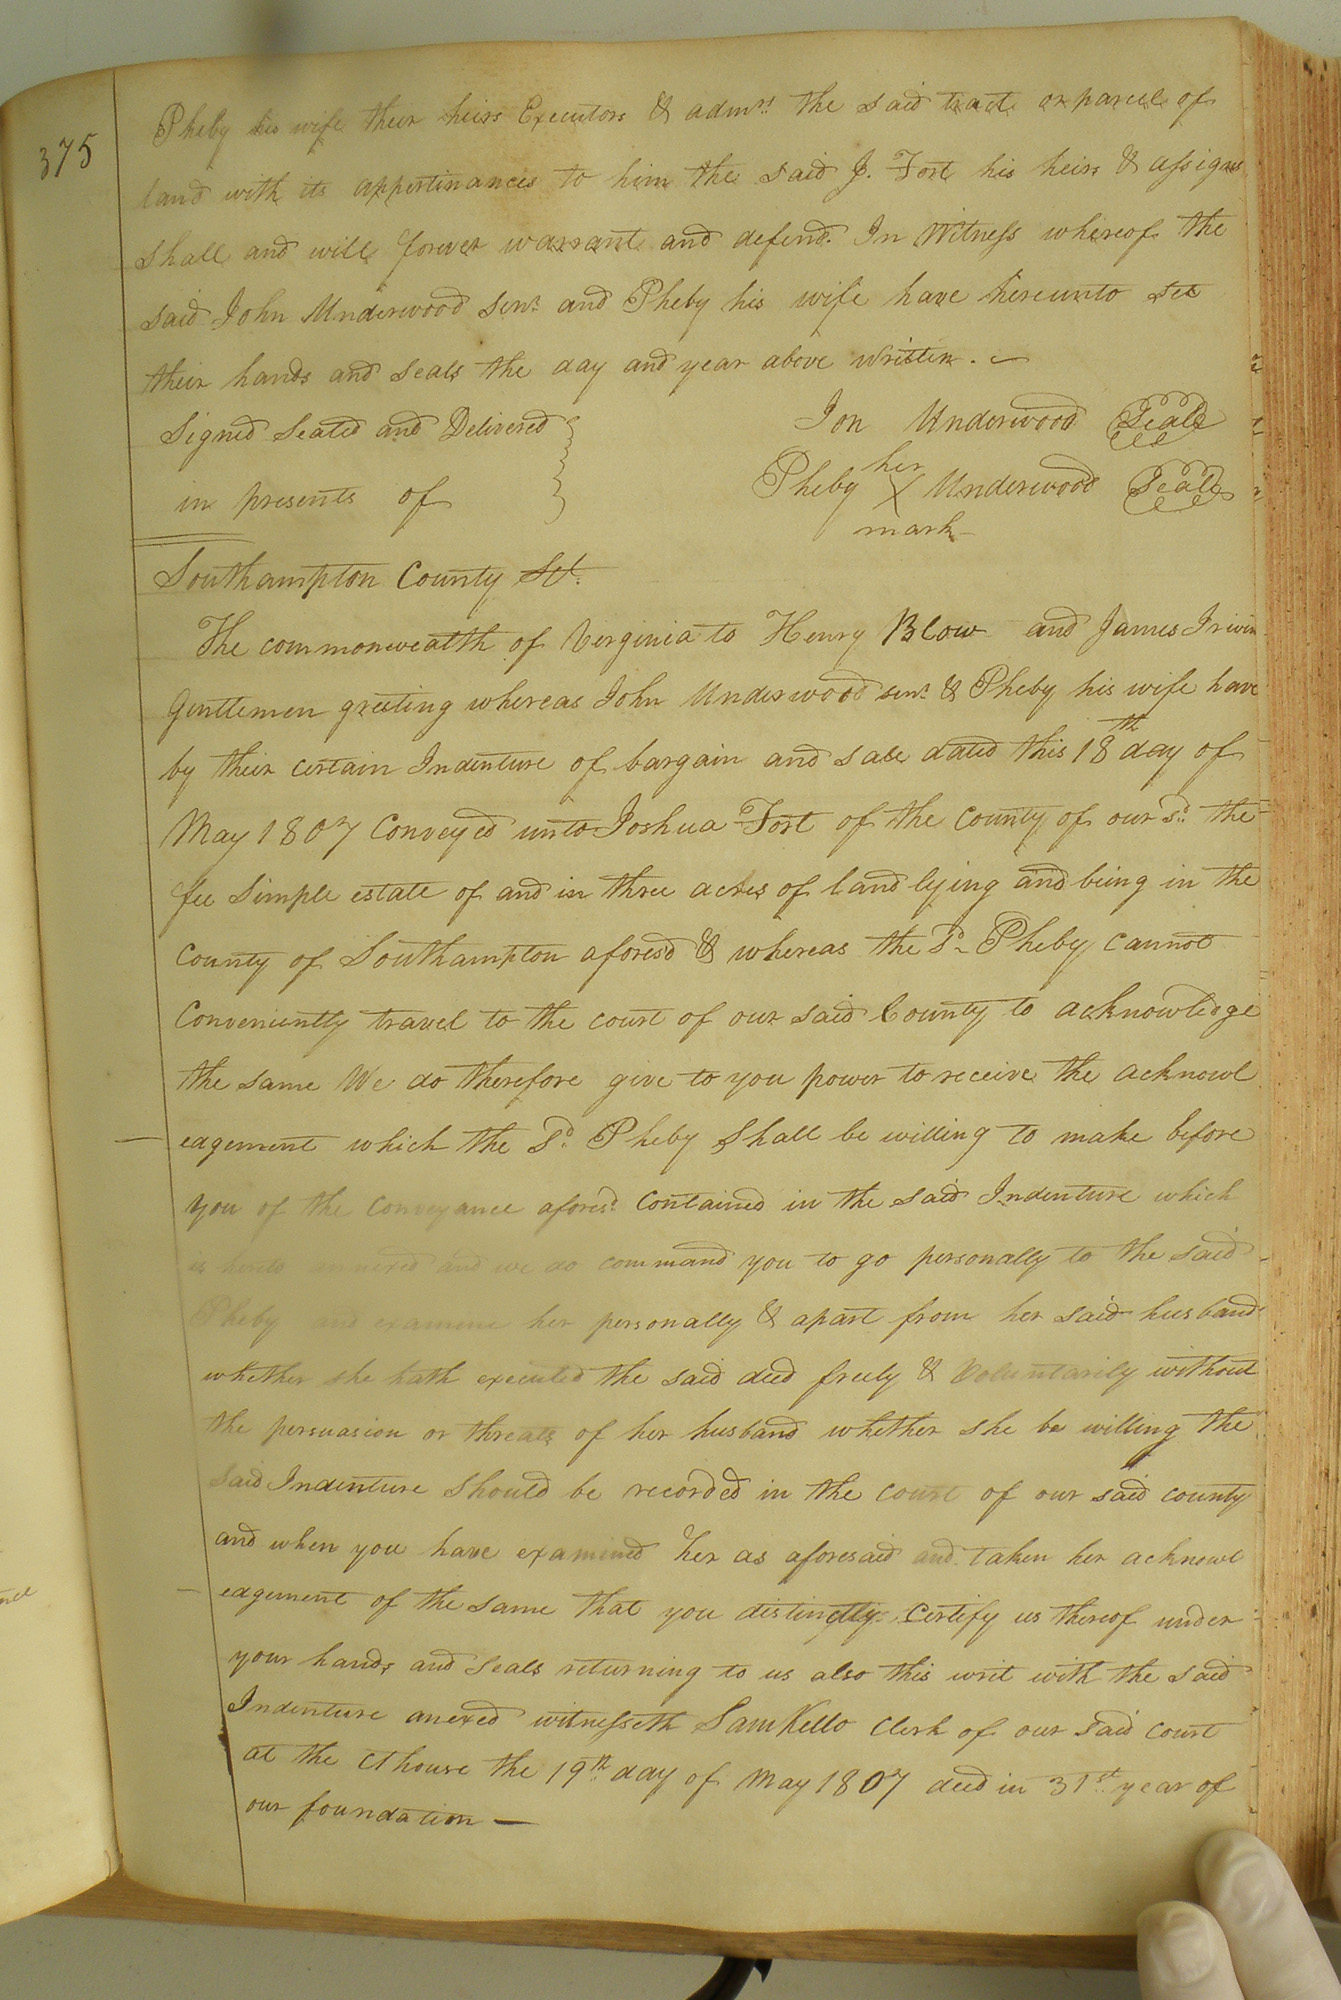 375
Pheby his wife their heirs Executors & admrs the said tract or parcel of
land with its appertinances to him the said J. Fort his heirs & assigns
shall and will forever warrant and defend. In Witness whereof the
said John Underwood senr and Pheby his wife have hereunto set
their hands and seals the day and year above written. —
Signed Sealed and Delivered
in presents of
Jon Underwood Seal
her
Pheby X Underwood Seal
mark
Southampton County Sct.
The commonwealth of Virginia to Henry Blow and James Irwin
Gentlemen greeting whereas John Underwood senr & Pheby his wife have
by their certain Indenture of bargain and sale dated this 18th day of
May 1807 Conveyed unto Joshua Fort of the County of our sd. the
fee Simple estate of and in three acres of land lying and being in the
County of Southampton aforesd & whereas the Sd Pheby cannot
Conveniently travel to the court of our said County to acknowledge
the same We do therefore give to you power to receive the acknowl
edgement which the Sd. Pheby shall be willing to make before
you of the conveyance aforesd. contained in the said Indenture which
is hereto annexed and we do command you to go personally to the said
Pheby and examine her personally & apart from her said husband
whether she hath executed the said deed freely & voluntarily without
the persuasion or threats of her husband whether she be willing the
said Indenture should be recorded in the court of our said county
and when you have examined her as aforesaid and taken her acknowl
edgement of the same that you distinctly certify us thereof under
your hands and seals returning to us also this writ with the said
Indenture anexed witnesseth Sam Kello Clerk of our said court
at the Cthouse the 19th day of May 1807 deed in 31st year of
our foundation —